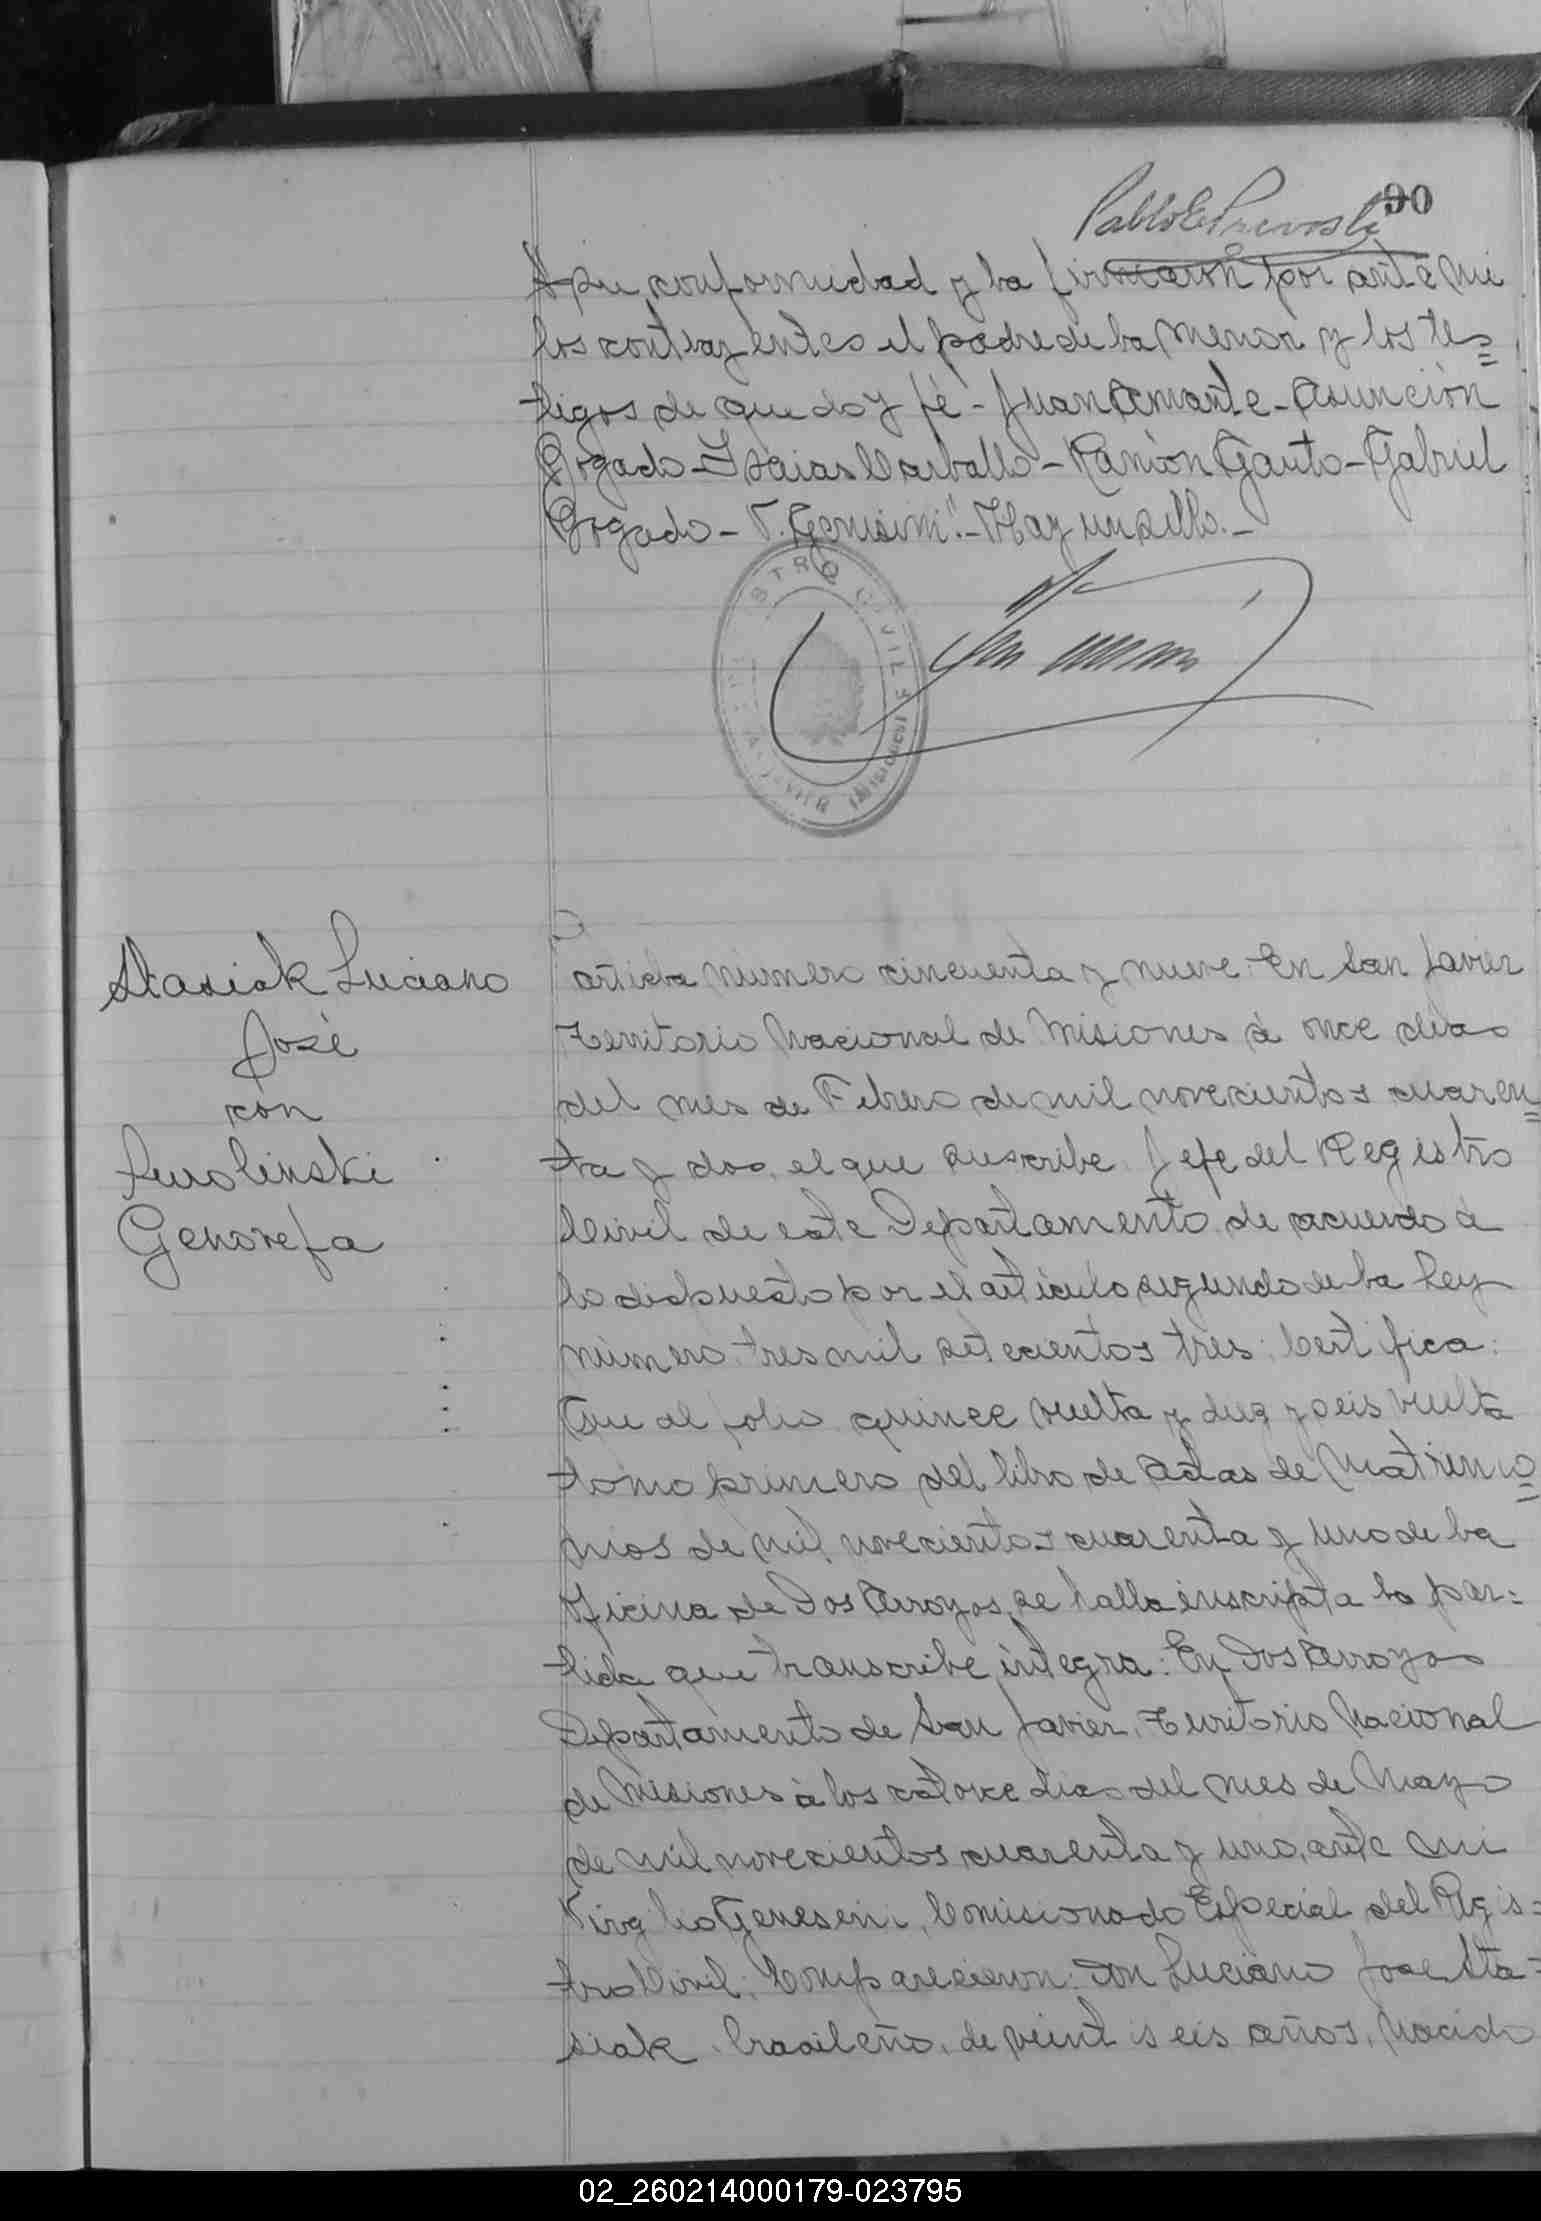 90
Pablo E Prevosti
su conformidad y la firmaron por ante mi
los contrayentes el padre de la menor y los tes=
tigos de que doy fé - Juan Amante - Asunción
Bogado - Isaias Carballo - Ramón Gauto - Gabriel
Bogado - V. Genisini". - Hay un sello. -
Stasiak Luciano
José
con
Genorefa
Partida número cincuenta y nueve: En San Javier
Territorio Nacional de Misiones á once dias
del mes de Febrero de mil novecientos cuaren=
ta y dos, el que suscribe Jefe del Registro
Civil de este Departamento de acuerdo á
lo dispuesto por el artículo segundo de la Ley
número tres mil setecientos tres: Certifica:
Que al folio quince vuelta y diez y seis vuelta
tomo primero del libro de Actas de Matrimo=
nios de mil novecientos cuarenta y uno de la
Oficina de Dos Arroyos, se halla inscripta la par=
tida que transcribe íntegra: En Dos Arroyos
Departamento de San Javier, Territorio Nacional
de Misiones á los catorce dias del mes de Mayo
de mil novecientos cuarenta y uno, ante mi
Virgilio Geneseni, Comisionado Especial del Regis=
tro Civil; Comparecieron: Don Luciano Jose Sta=
siak, brasileño, de veintiseis años, nacido
02_260214000179-023795